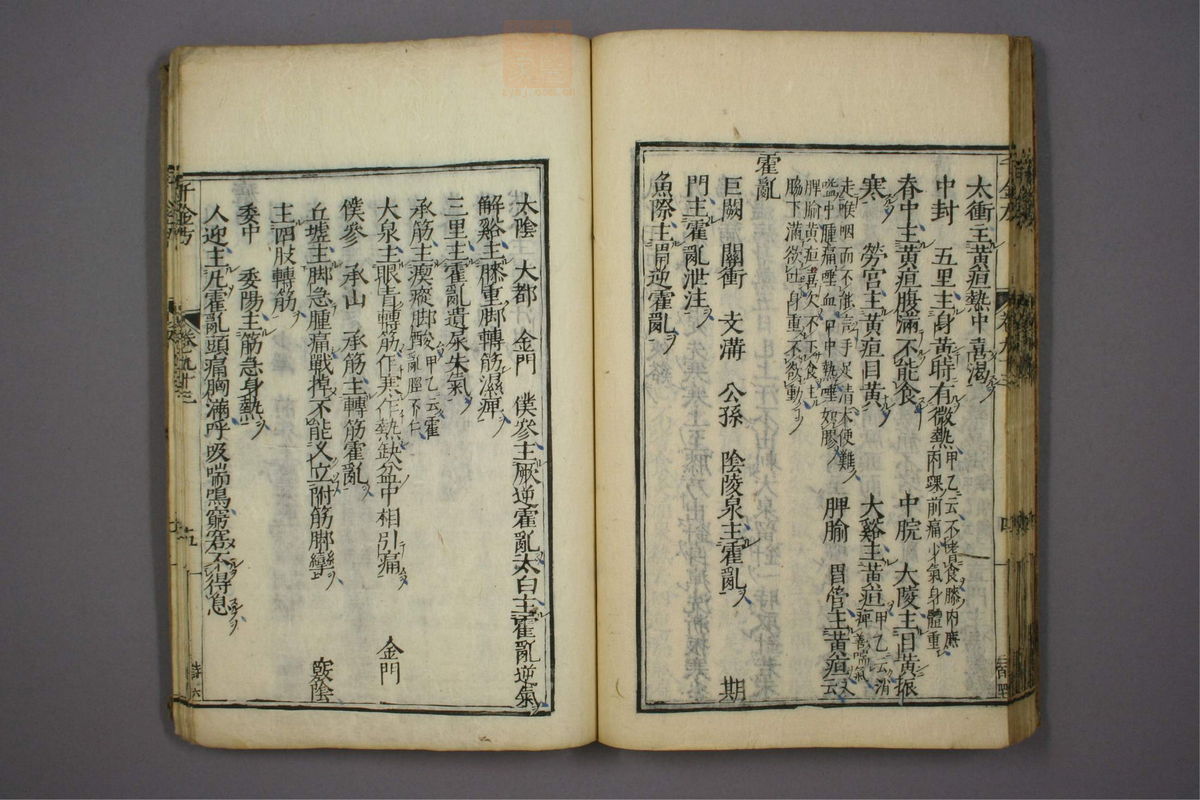 太衝主黃疸熱中喜渴
中封　五里主身黃時有微熱甲乙云不嗜食膝內廉內踝前痛少氣身體重
春中主黃疸腹滿不能食　中脘　大陵主目黃振
寒　勞宮主黃疸目黃　大谿主黃疸甲乙云消痺善喘氣
走喉咽而不能言手足清末便難
嗌中腫痛唾血口中熱唾如膠　脾腧　胃管主黃疸云
脾腧黃疸喜欠不下食主
脇下滿欲吐身重不欲動
霍亂
巨闕　關衝　支溝　公孫　陰陵泉主霍亂　期
門主霍亂泄注
魚際主胃逆霍亂
太陰　大都　金門　僕參主厥逆霍亂太白主霍亂逆氣
解谿主膝重脚轉筋濕痺
三里主霍亂遺尿失氣
承筋主瘈瘲脚酸甲乙云霍亂脛不仁
大泉主眼青轉筋乍寒乍熱缺盆中相引痛　金門
僕參　承山　承筋主轉筋霍亂
丘墟主脚急腫痛戰掉不能久立附筋脚攣　竅陰
主四肢轉筋
委中　委陽主筋急身熱
人迎主吐霍亂頭痛胸滿呼吸喘鳴窮窘不得息
千金方
卷九十三
五